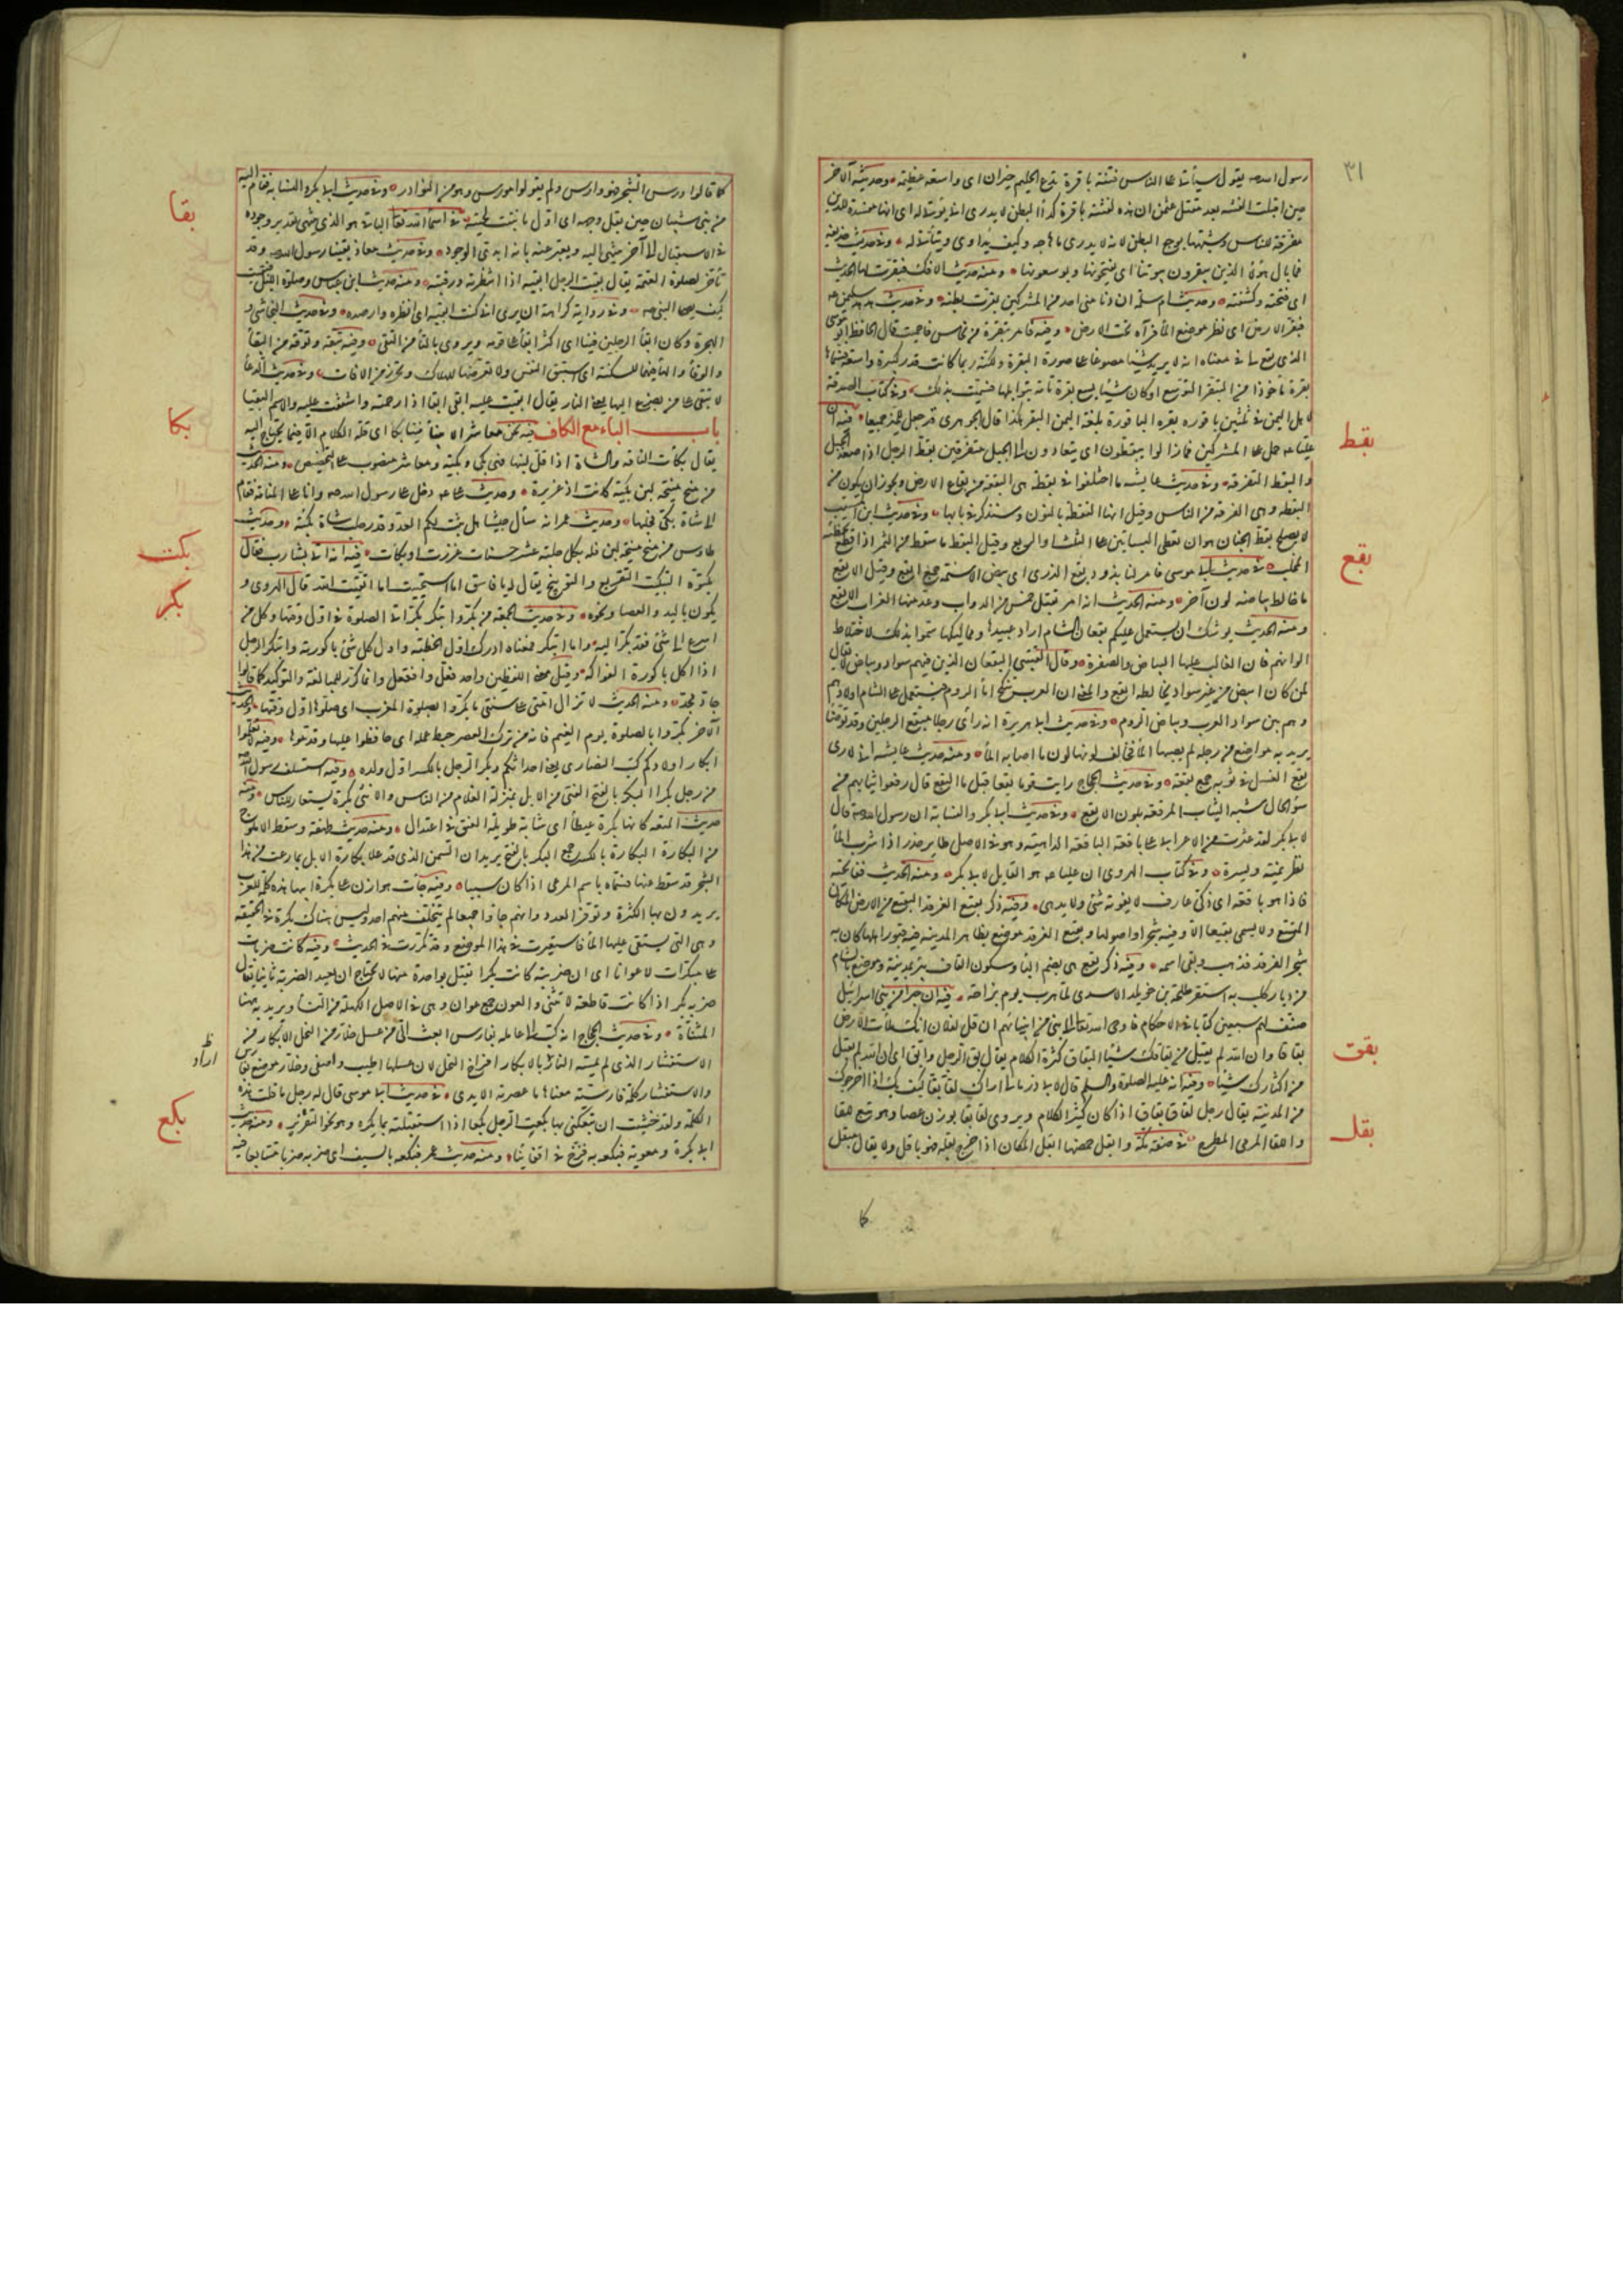 ٣١
رسول الله صه يقول سيأتي على الناس فتنة باقرة تدع الحليم حيران اى واسعة عظيمة وحديثه الآخر
حين اقبلت الفتنة بعد مقتل عثمن ان هذه لفتنة باقرة كداء البطن لا يدرى انى يؤتى له اى انها مفسدة للدين
مفرقة للناس وشبهها بوجع البطن لانه لا يدرى ما هاجه وكيف يداوى ويتأتى له وفى حديث حذيفة
فما بال هؤلاء الذين يبقرون بيوتنا اى يفتحونها ويوسعونها ومنه حديث الافك فبقرت لها الحديث
اى فتحته وكشفته وحديث ام سلمة ان دنا منى احد من المشركين بقرت بطنه وفى حديث هدهد سليمن
فبقر الارض اى نظر موضع الماء فرآه تحت الارض وفيه فامر ببقرة من نحاس فاحميت قال الحافظ ابو موسى
الذى يقع لى فى معناه انه لا يريد شيئا مصوغا على صورة البقرة ولكنه ربما كانت قدرا كبيرة واسعة فسماها
بقرة ماخوذا من التبقر التوسع او كان شيئا يسع بقرة تامة بتوابلها فسميت بذلك وفى كتاب الصدقة
لاهل اليمن فى ثلثين باقورة بقرة الباقورة بلغة اليمن البقر هكذا قال الجوهرى فيه ان
بقط
عليا حمل على المشركين فما زالوا يبقطون اى يتعادون الى الجبل متفرقين بقط الرجل اذا صعد الجبل
والبقط التفرقة وفى حديث عايشة ما اختلفوا فى بقطة هى البقعة من بقاع الارض ويجوز ان يكون من
البقطة وهى الفرقة من الناس وقيل انها النقطة بالنون وستذكر فى بابها وفى حديث ابن المسيب
لا يصلح بقط الجنان هو ان تعطى البساتين على الثلث او الربع وقيل البقط ما سقط من الثمر اذا قطع
بقع
المخلب فى حديث ابى موسى فامر لنا بذود بقع الذرى اى بيض الاسنمة جمع ابقع وقيل الابقع
ما خالط بياضه لون آخر ومنه الحديث انه امر بقتل خمس من الدواب وعد منها الغراب الابقع
ومنه الحديث يوشك ان يستعمل عليكم بقعان الشام اراد عبيدها ومماليكها سموا بذلك لاختلاط
الوانهم فان الغالب عليها البياض والصفرة وقال القتيبى البقعان الذين فيهم سواد وبياض لا يقال
لمن كان ابيض من غير سواد يخالطه ابقع والمعنى ان العرب تنكح اماء الروم فيستعمل على الشام اولادهم
وهم بين سواد العرب وبياض الروم وفى حديث ابى هريرة انه رأى رجلا مبقع الرجلين وقد توضأ
يريد به مواضع من رجله لم يصبها الماء فخالف لونها لون ما اصابه الماء ومنه حديث عايشة انى لارى
بقع الغسل فى ثوبه جمع بقعة وفى حديث الحجاج رايت قوما بقعا قيل ما البقع قال رقعوا ثيابهم من
سوء الحال شبه الثياب المرقعة بلون الابقع وفى حديث ابى بكر والنسابة ان رسول الله صه قال
لابى بكر لقد عثرت من الاعرابى على باقعة الباقعة الداهية وهو فى الاصل طاير حذر اذا شرب الماء
نظر يمنة ويسرة وفى كتاب الهروى ان عليا هو القايل لابى بكر ومنه الحديث ففاتحته
فاذا هو باقعة اى ذكى عارف لا يفوته شئ ولا يدهى وفيه ذكر بقيع الغرقد البقيع من الارض المكان
المتسع ولا يسمى بقيعا الا وفيه شجر او اصولها وبقيع الغرقد موضع بظاهر المدينة فيه قبور اهلها كان به
شجر الغرقد فذهب وبقى اسمه وفيه ذكر بقع هى بضم الباء وسكون القاف بئر بالمدينة وموضع بالشام
من ديار كلب به استقر طلحة بن خويلد الاسدى لما هرب يوم بزاخة فيه ان حبرا من بنى اسرائيل
صنف لهم سبعين كتابا فى الاحكام فاوحى الله تعالى الى نبى من انبيائهم ان قل لفلان انك ملأت الارض
بقق
بقاقا وان الله لم يقبل من بقاقك شيئا البقاق كثرة الكلام يقال بق الرجل وابق اى ان الله لم يقبل
من اكثارك شيئا وفيه انه عليه الصلوة والسلم قال لابى ذر مالى اراك لقا بقا كيف بك اذا اخرجوك
من المدينة يقال رجل لقاق بقاق اذا كان كثير الكلام ويروى لقا بقا بوزن عصا وهو تبع للقا
بقل
واللقا المرمى المطروح فى صفة مكة وابقل حمضها ابقل المكان اذا خرج بقله فهو باقل ولا يقال مبقل
كا
كما قالوا اورس الشجر فهو وارس ولم يقولوا مورس وهو من النوادر وفى حديث ابى بكر والنسابة فقام اليه
بقا
من بنى شيبان حين بقل وجهه اى اول ما نبتت لحيته فى اسماء الله تعالى الباقى هو الذى لا ينتهى تقدير وجوده
فى الاستقبال الى آخر ينتهى اليه ويعبر عنه بانه ابدى الوجود وفى حديث معاذ بقينا رسول الله صه وقد
تأخر لصلوة العتمة يقال بقيت الرجل ابقيه اذا انتظرته ورقبته ومنه حديث ابن عباس وصلوة الليل فبقيت
كيف يصلى النبى صه وفى رواية كراهة ان يرى انى كنت ابقيه اى انظره وارصده وفى حديث النجاشى و
الهجرة وكان ابقى الرجلين فينا اى اكثر ابقاء على قومه ويروى بالتاء من التقى وفيه تبقه وتوقه من البقاء
والوقاء والهاء فيهما للسكت اى استبق النفس ولا تعرضها للهلاك وتحرز من الافات وفى حديث الدعاء
لا تبقى على من يضرع اليها يعنى النار يقال ابقيت عليه ابقى ابقاء اذا رحمته واشفقت عليه والاسم البقيا
بكا
باب الباء مع الكاف فيه نحن معاشر الانبياء فينا بكأ اى قلة الكلام الا فيما يحتاج اليه
يقال بكأت الناقة والشاة اذا قل لبنها فهى بكى وبكيئة ومعاشر منصوب على التخصيص ومنه الحديث
من منح منيحة لبن بكيئة كانت او غزيرة وحديث على دخل على رسول الله صه وانا على المنامة فقام
الى شاة بكئ فحلبها وحديث عمر انه سأل جيشا هل ثبت لكم العدو قدر حلب شاة بكيئة وحديث
طاوس من منح منيحة لبن فله بكل حلبة عشر حسنات غزرت او بكأت فيه انه اتى بشارب فقال
بكت
بكتوه التبكيت التقريع والتوبيخ يقال له يا فاسق اما استحييت اما اتقيت الله قال الهروى و
بكر
يكون باليد والعصا ونحوه وفى حديث الجمعة من بكر وابتكر بكر اتى الصلوة فى اول وقتها وكل من
اسرع الى شئ فقد بكر اليه واما ابتكر فمعناه ادرك اول الخطبة واول كل شئ باكورته وابتكر الرجل
اذا اكل باكورة الفواكه وقيل معنى اللفظين واحد فعل وافتعل وانما كرر للمبالغة والتوكيد كما قالوا
جاد مجد ومنه الحديث لا تزال امتى على سنتى ما بكروا بصلوة المغرب اى صلوها اول وقتها والحديث
الآخر بكروا بالصلوة يوم الغيم فانه من ترك العصر حبط عمله اى حافظوا عليها وقدموها وفيه لا تعلموا
ابكار اولادكم كتب النصارى يعنى احداثكم وبكر الرجل بالكسر اول ولده وفيه استسلف رسول الله صه
من رجل بكرا البكر بالفتح الفتى من الابل بمنزلة الغلام من الناس والانثى بكرة يستعار للناس ومنه
حديث المتعة كانها بكرة عيطاء اى شابة طويلة العنق فى اعتدال ومنه حديث طهفة وسقط الاملوج
من البكارة البكارة بالكسر جمع البكر بالفتح يريد ان السمن الذى قد علا بكارة الابل بما رعت من هذا
الشجر قد سقط عنها فسماه باسم المرعى اذا كان سببا وفيه جاءت هوازن على بكرة ابيها هذه كلمة للعرب
يريدون بها الكثرة وتوفر العدد وانهم جاؤا جميعا لم يتخلف منهم احد وليس هناك بكرة فى الحقيقة
وهى التى يستقى عليها الماء فاستعيرت فى هذا الموضع وقد تكررت فى الحديث وفيه كانت ضربات
على مبتكرات لا عونا اى ان ضربته كانت بكرا يقتل بواحدة منها لا يحتاج ان يعيد الضربة ثانيا يقال
ضربة بكر اذا كانت قاطعة لا تثنى والعون جمع عوان وهى فى الاصل الكهلة من النساء ويريد به هنا
المثناة وفى حديث الحجاج انه كتب الى عامله بفارس ابعث الى من عسل خلار من النحل الابكار من
الاستفشار الذى لم تمسه النار يريد بالابكار افراخ النحل لان عسلها اطيب واصفى وخلار موضع بفارس
والاستفشار كلمة فارسية معناها ما عصرته الايدى فى حديث ابى موسى قال له رجل ما قلت هذه
بكع
الكلمة ولقد خشيت ان تبكعنى بها بكعت الرجل بكعا اذا استقبلته بما يكره وهو نحو التقريع ومنه حديث
ابى بكرة ومعوية فبكعه به فزخ فى اقفائنا ومنه حديث عمر فبكعه بالسيف اى ضربه ضربا متتابعا فيه